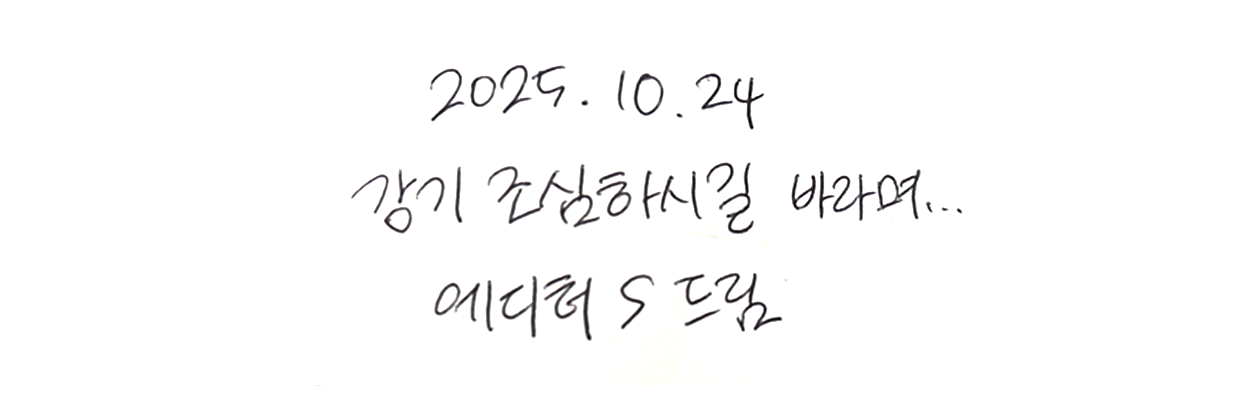 2025. 10. 24
감기 조심하시길 바라며...
에디터 S 드림